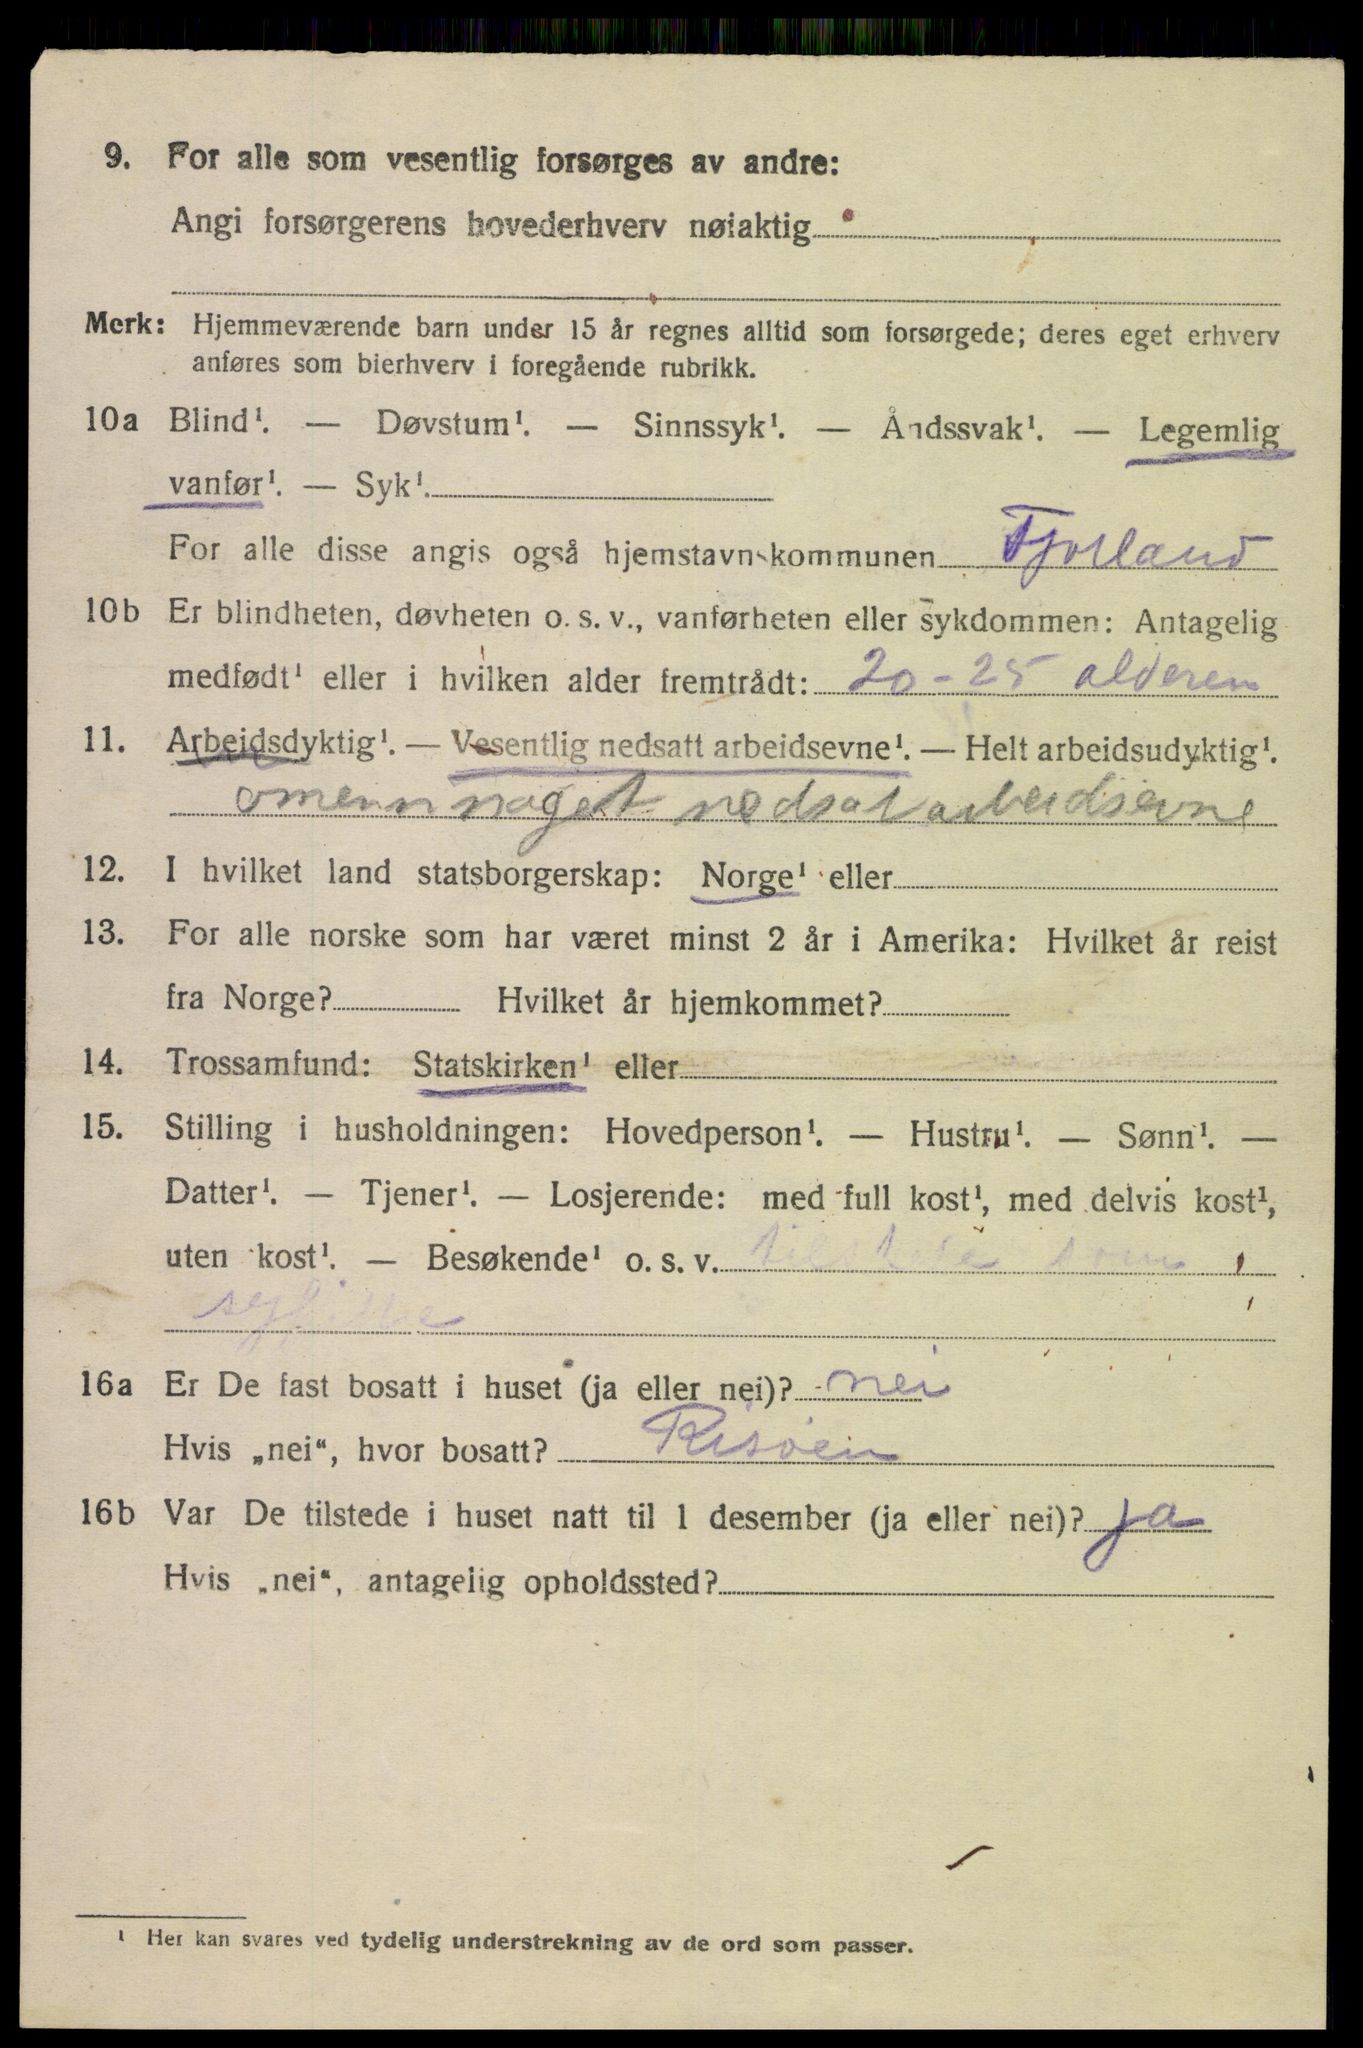 9. For alle som vesentlig forsørges av andre:
Angi forsørgerens hovederhverv nøiaktig
Merk: Hjemmeværende barn under 15 år regnes alltid som forsørgede; deres eget erhverv
anføres som bierhverv i foregående rubrikk.
10a Blind¹. — Døvstum¹. — Sinnssyk¹. — Åndssvak¹. — Legemlig
vanfør¹. — Syk¹.
For alle disse angis også hjemstavnskommunen Fjorland
10b Er blindheten, døvheten o. s. v., vanførheten eller sykdommen: Antagelig
medfødt¹ eller i hvilken alder fremtrådt: 20-25 alderen
11. Arbeidsdyktig¹. — Vesentlig nedsatt arbeidsevne¹. — Helt arbeidsudyktig¹.
noget nedsat arbeidsevne
12. I hvilket land statsborgerskap: Norge¹ eller
13. For alle norske som har været minst 2 år i Amerika: Hvilket år reist
fra Norge? Hvilket år hjemkommet?
14. Trossamfund: Statskirken¹ eller
15. Stilling i husholdningen: Hovedperson¹. — Hustru¹. — Sønn¹. —
Datter¹. — Tjener¹. — Losjerende: med full kost¹, med delvis kost¹,
uten kost¹. — Besøkende¹ o. s. v. tilstede som
16a Er De fast bosatt i huset (ja eller nei)? nei
Hvis „nei“, hvor bosatt? Risøen
16b Var De tilstede i huset natt til 1 desember (ja eller nei)? ja
Hvis „nei“, antagelig opholdssted?
¹ Her kan svares ved tydelig understrekning av de ord som passer.